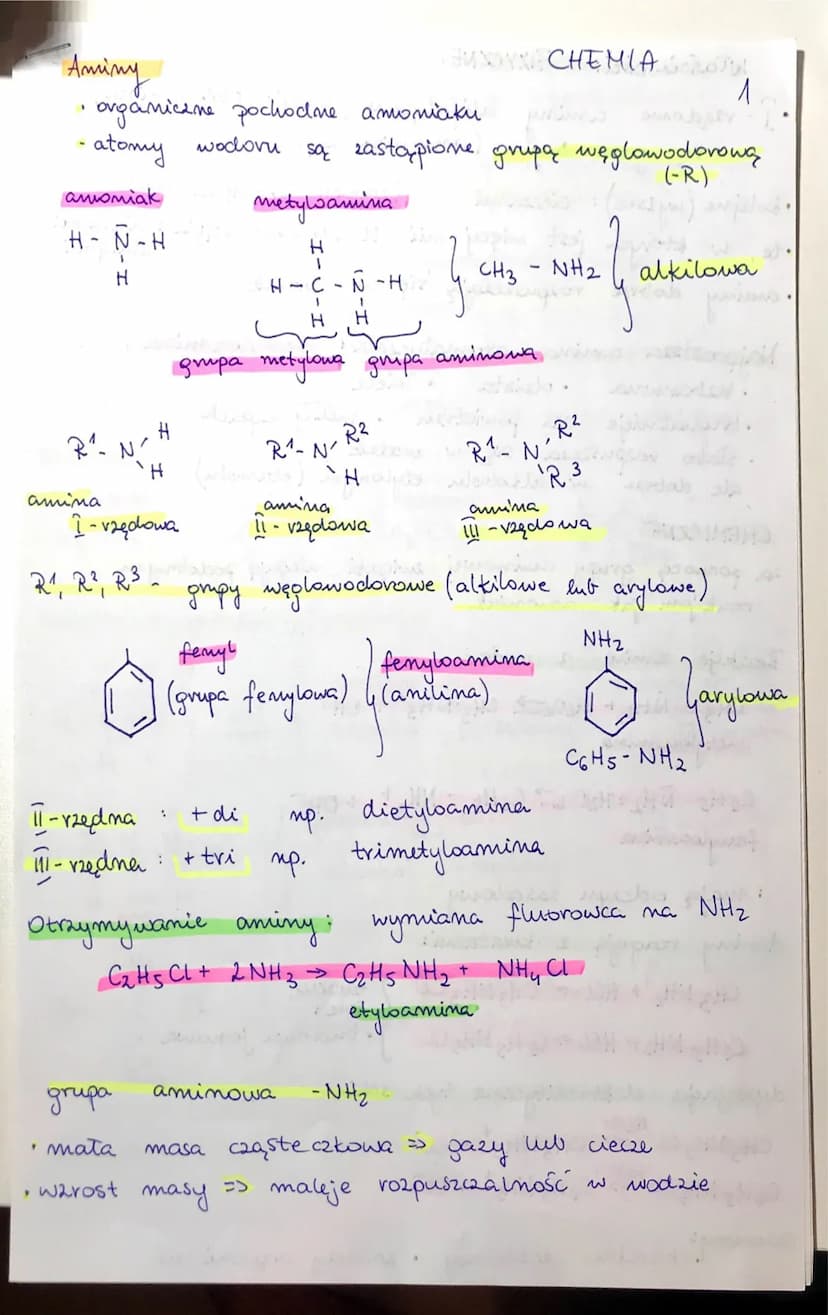 CHEMIA
1
Aminy
• organiczne pochodne amoniaku
- atomy wodoru są zastąpione grupą węglowodorową
(-R)
amoniak metyloamina
H - N - H
H
H
H - C - N - H } CH3 - NH2 } alkilowa
H H
grupa metylowa grupa aminowa
R1 - N H H R1 - N R2 H R1 - N R2 R3
amina amina amina
I - rzędowa II - rzędowa III - rzędowa
R1, R2, R3 - grupy węglowodorowe (alkilowe lub arylowe)
fenyl
(grupa fenylowa) } fenyloamina
(anilina)
NH2
} arylowa
C6H5 - NH2
II - rzędna : + di np. dietyloamina
III - rzędna : + tri np. trimetyloamina
Otrzymywanie aminy: wymiana fluorowca na NH2
C2H5Cl + 2NH3 → C2H5NH2 + NH4Cl
etyloamina
grupa aminowa - NH2
• mała masa cząsteczkowa => gazy lub ciecze
• wzrost masy => maleje rozpuszczalność w wodzie